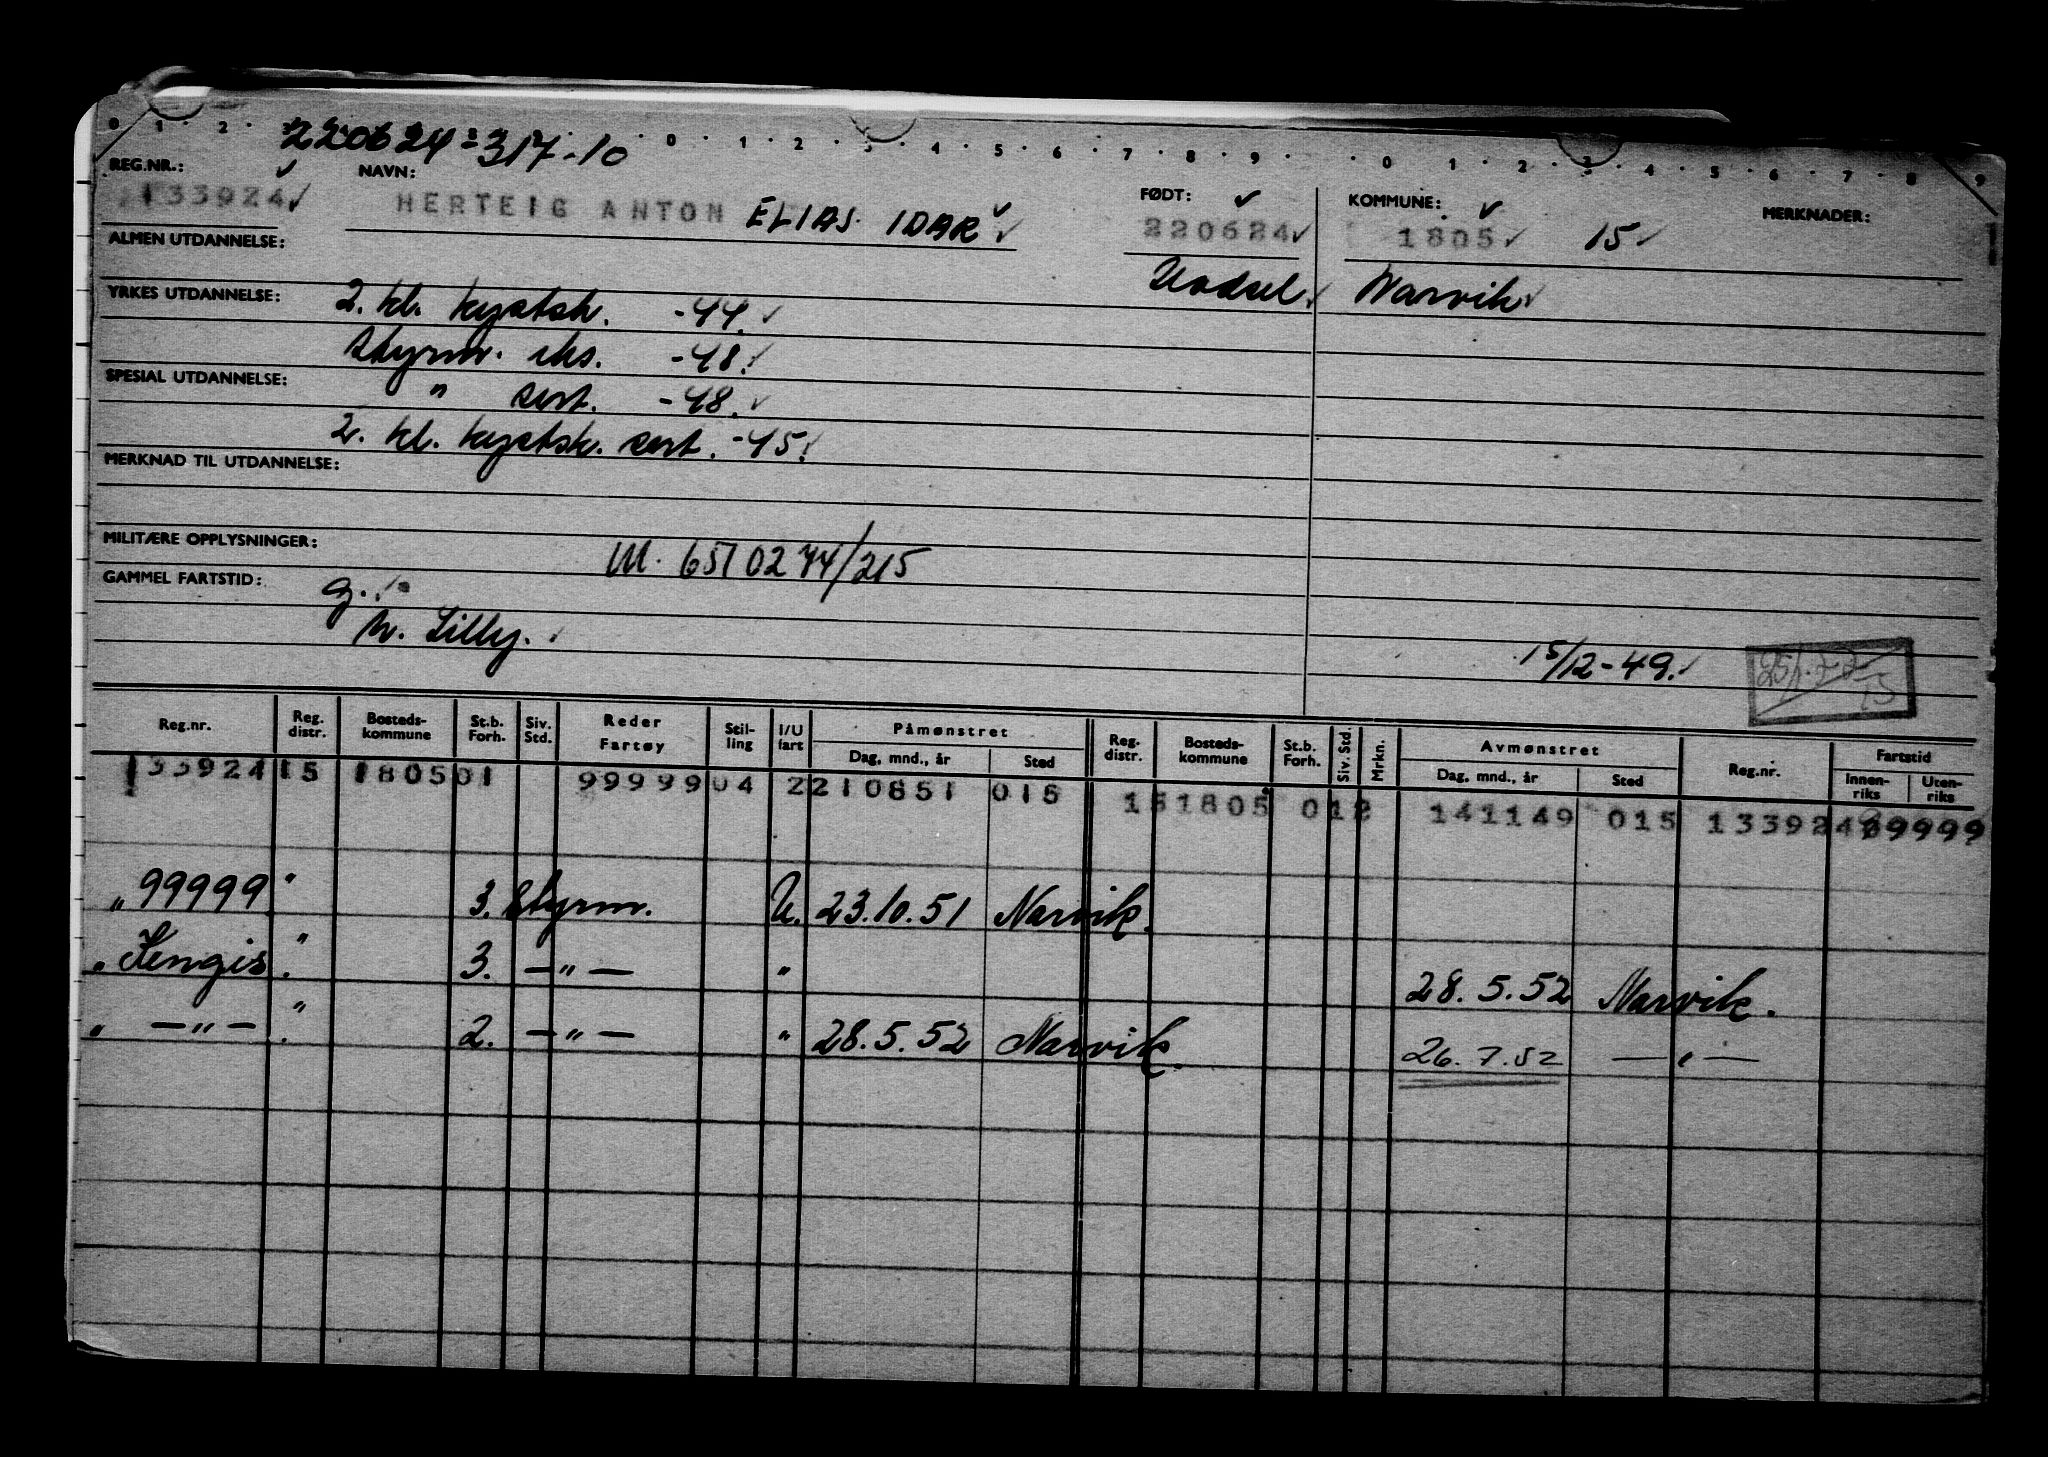 0 1 2 0 1 2 3 4 5 6 7 8 9 0 1 2 3 4 5 6 7 8 9
220624-317-10
REG.NR.: NAVN: FØDT: KOMMUNE: MERKNADER:
133924 HERTEIG ANTON ELIAS IDAR 220624 1805 15
ALMEN UTDANNELSE:
Hadsel Narvik
YRKES UTDANNELSE: 2. kl. kystsk. -44.
Styrm. eks. -48.
SPESIAL UTDANNELSE: " sert. -48.
2. kl. kystsk. sert. -45.
MERKNAD TIL UTDANNELSE:
MILITÆRE OPPLYSNINGER: M. 6510274/215
GAMMEL FARTSTID: g.
h. Lilly.
15/12-49.
Reg.nr. Reg. distr. Bosteds-kommune St.b. Forh. Siv. Std. Reder Fartøy Stil-ling I/U fart Påmønstret Dag, mnd., år Sted Reg. distr. Bosteds-kommune St.b. Forh. Siv. Std. Mrkn. Avmønstret Dag, mnd., år Sted Reg.nr. Fartstid Innen-riks Uten-riks
133924 15 1805 01 99999 04 2 210851 015 15 1805 01 2 141149 015 133924 99999
" 99999 " 3. Styrm. U. 23.10.51 Narvik.
" Kengis " 3. —"— " 28.5.52 Narvik.
" —"— " 2. —"— " 28.5.52 Narvik. 26.7.52 —"—